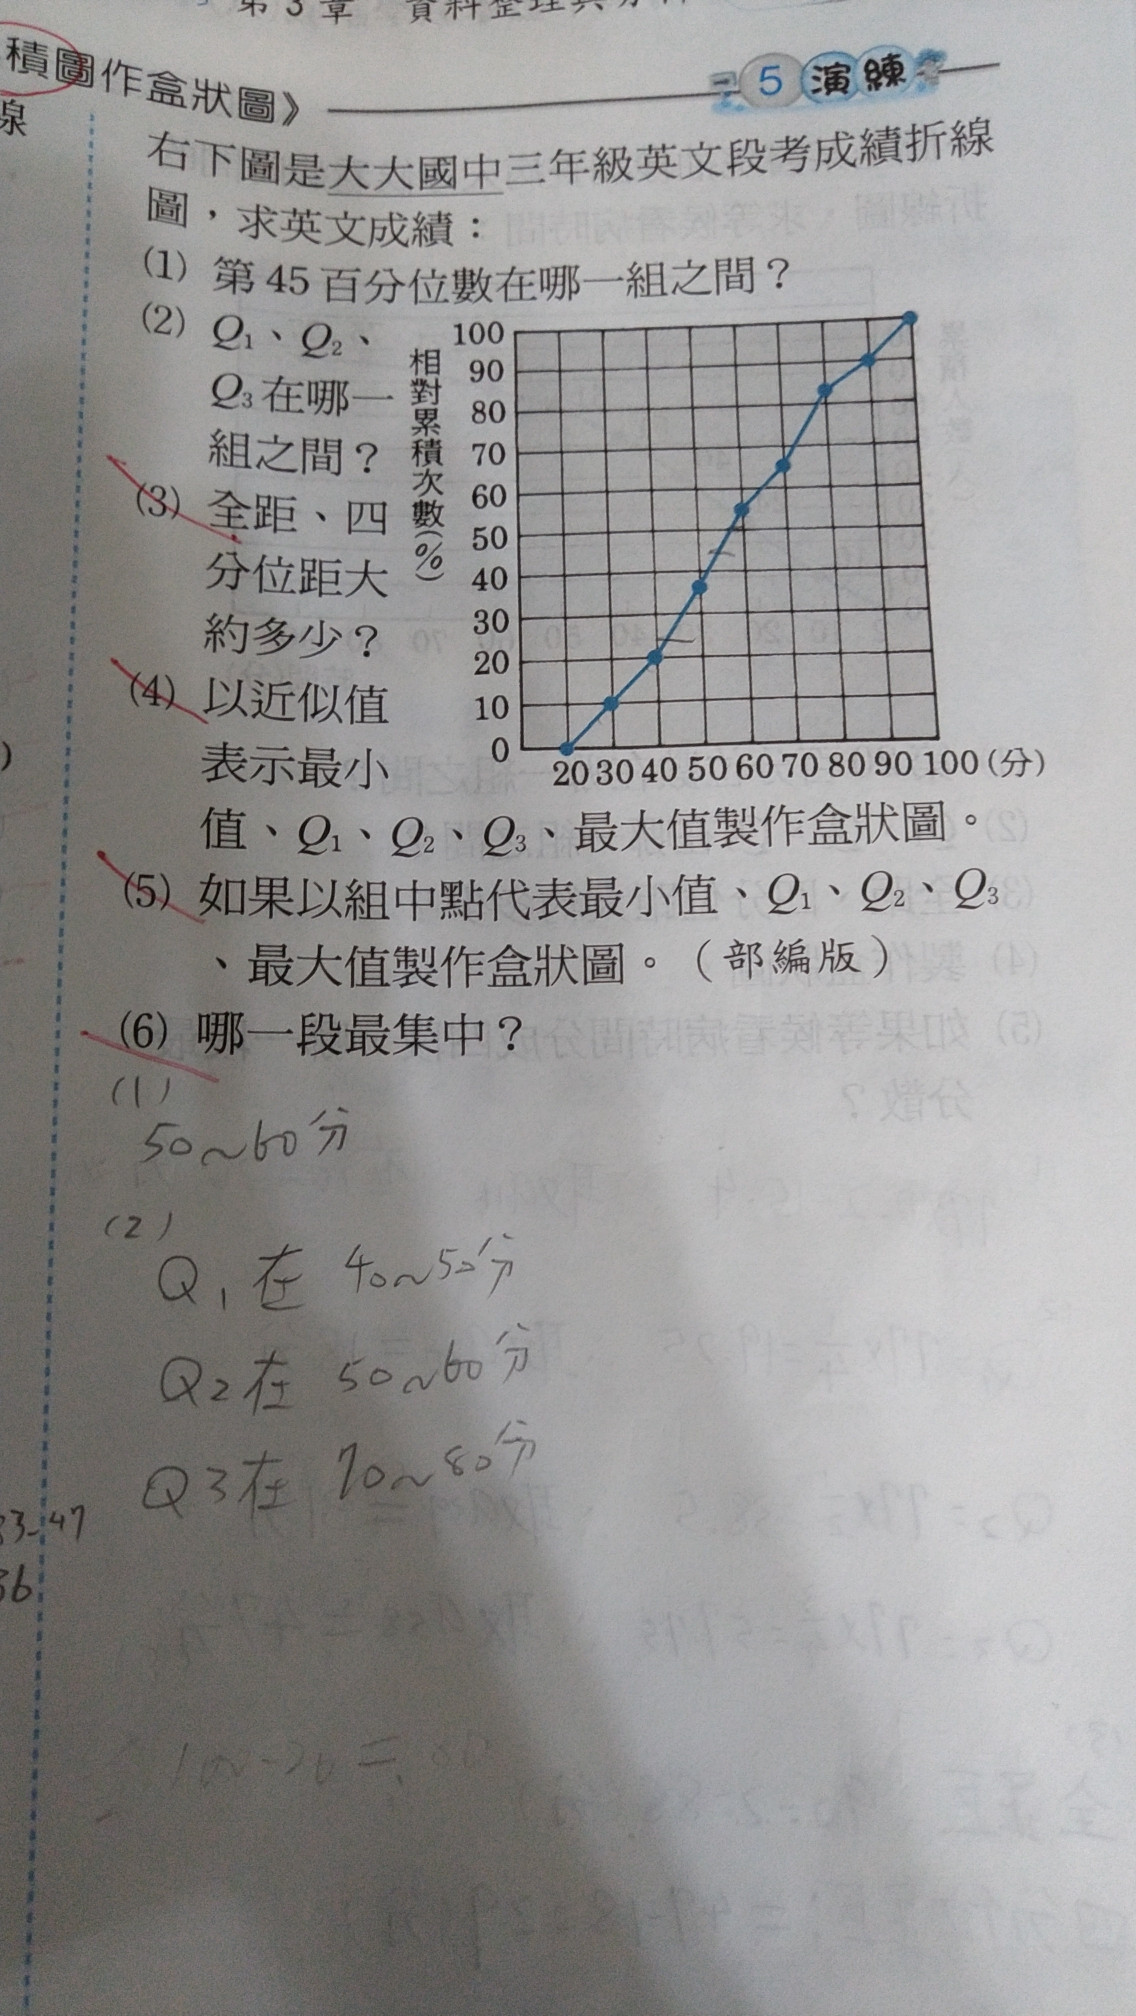 第3章 資料整理與分析
積圖作盒狀圖》
5 演練
線
右下圖是大大國中三年級英文段考成績折線
圖，求英文成績：
(1) 第45百分位數在哪一組之間？
(2) Q1、Q2、
Q3在哪一
組之間？
(3) 全距、四
分位距大
約多少？
(4) 以近似值
表示最小
值、Q1、Q2、Q3、最大值製作盒狀圖。
相對累積次數(%)
100
90
80
70
60
50
40
30
20
10
0
20 30 40 50 60 70 80 90 100 (分)
(5) 如果以組中點代表最小值、Q1、Q2、Q3
、最大值製作盒狀圖。（部編版）
(6) 哪一段最集中？
(1)
50~60分
(2)
Q1在 40~50分
Q2在 50~60分
Q3在 70~80分
3-47
36
100-20=80